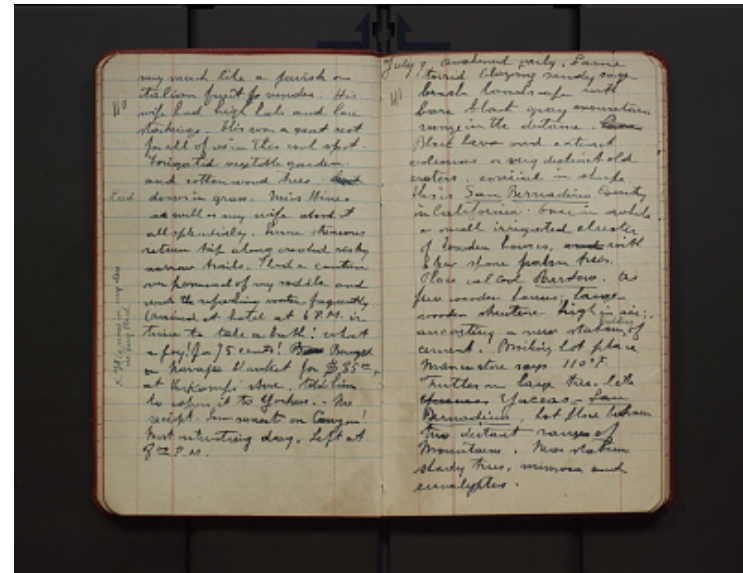 110
very much like a Jewish or
Italian fruit
vender. His
wife had high heels and lace
stockings. This was a great rest
for all of us in this cool spot.
Irrigated vegetable garden
and cotton wood trees.
down in grass. Miss Hines
as well as my wife stood it
all splendidly. Same
return trip along crooked rocky
narrow trails. I had a canteen
on pommel of my saddle and
the refreshing water frequently
Arrived at hotel at 6 P.M. in
time to take a bath! What
a joy! for 75 cents! Bought
a Navajo blanket for $35
at Verkamps store. told him
to
it to Yonkers. - No
receipt. Saw sunset on Canyon!
Most interesting day. Left at
8 P.M.
now in my den
111
July 9. Awakened early. Same
torrid blazing sandy sage
brush landscape with
bare black gray mountain
range in the distance.
Black lava and extinct
volcanoes or very distinct old
craters, conical in shape
this is San Bernadino County
in California. Once in awhile
a small irrigated cluster
of wooden houses, with
a few
palm trees.
Place called Barstow. a
few wooden houses, large
wooden structure high in air,
a new station building of
cement. Broiling hot place
says 110° F.
large tree. like
Yuccas - San
Bernadino, hot place between
two distant ranges of
Mountains. New station
shady trees, mimosa and
eucalyptus.